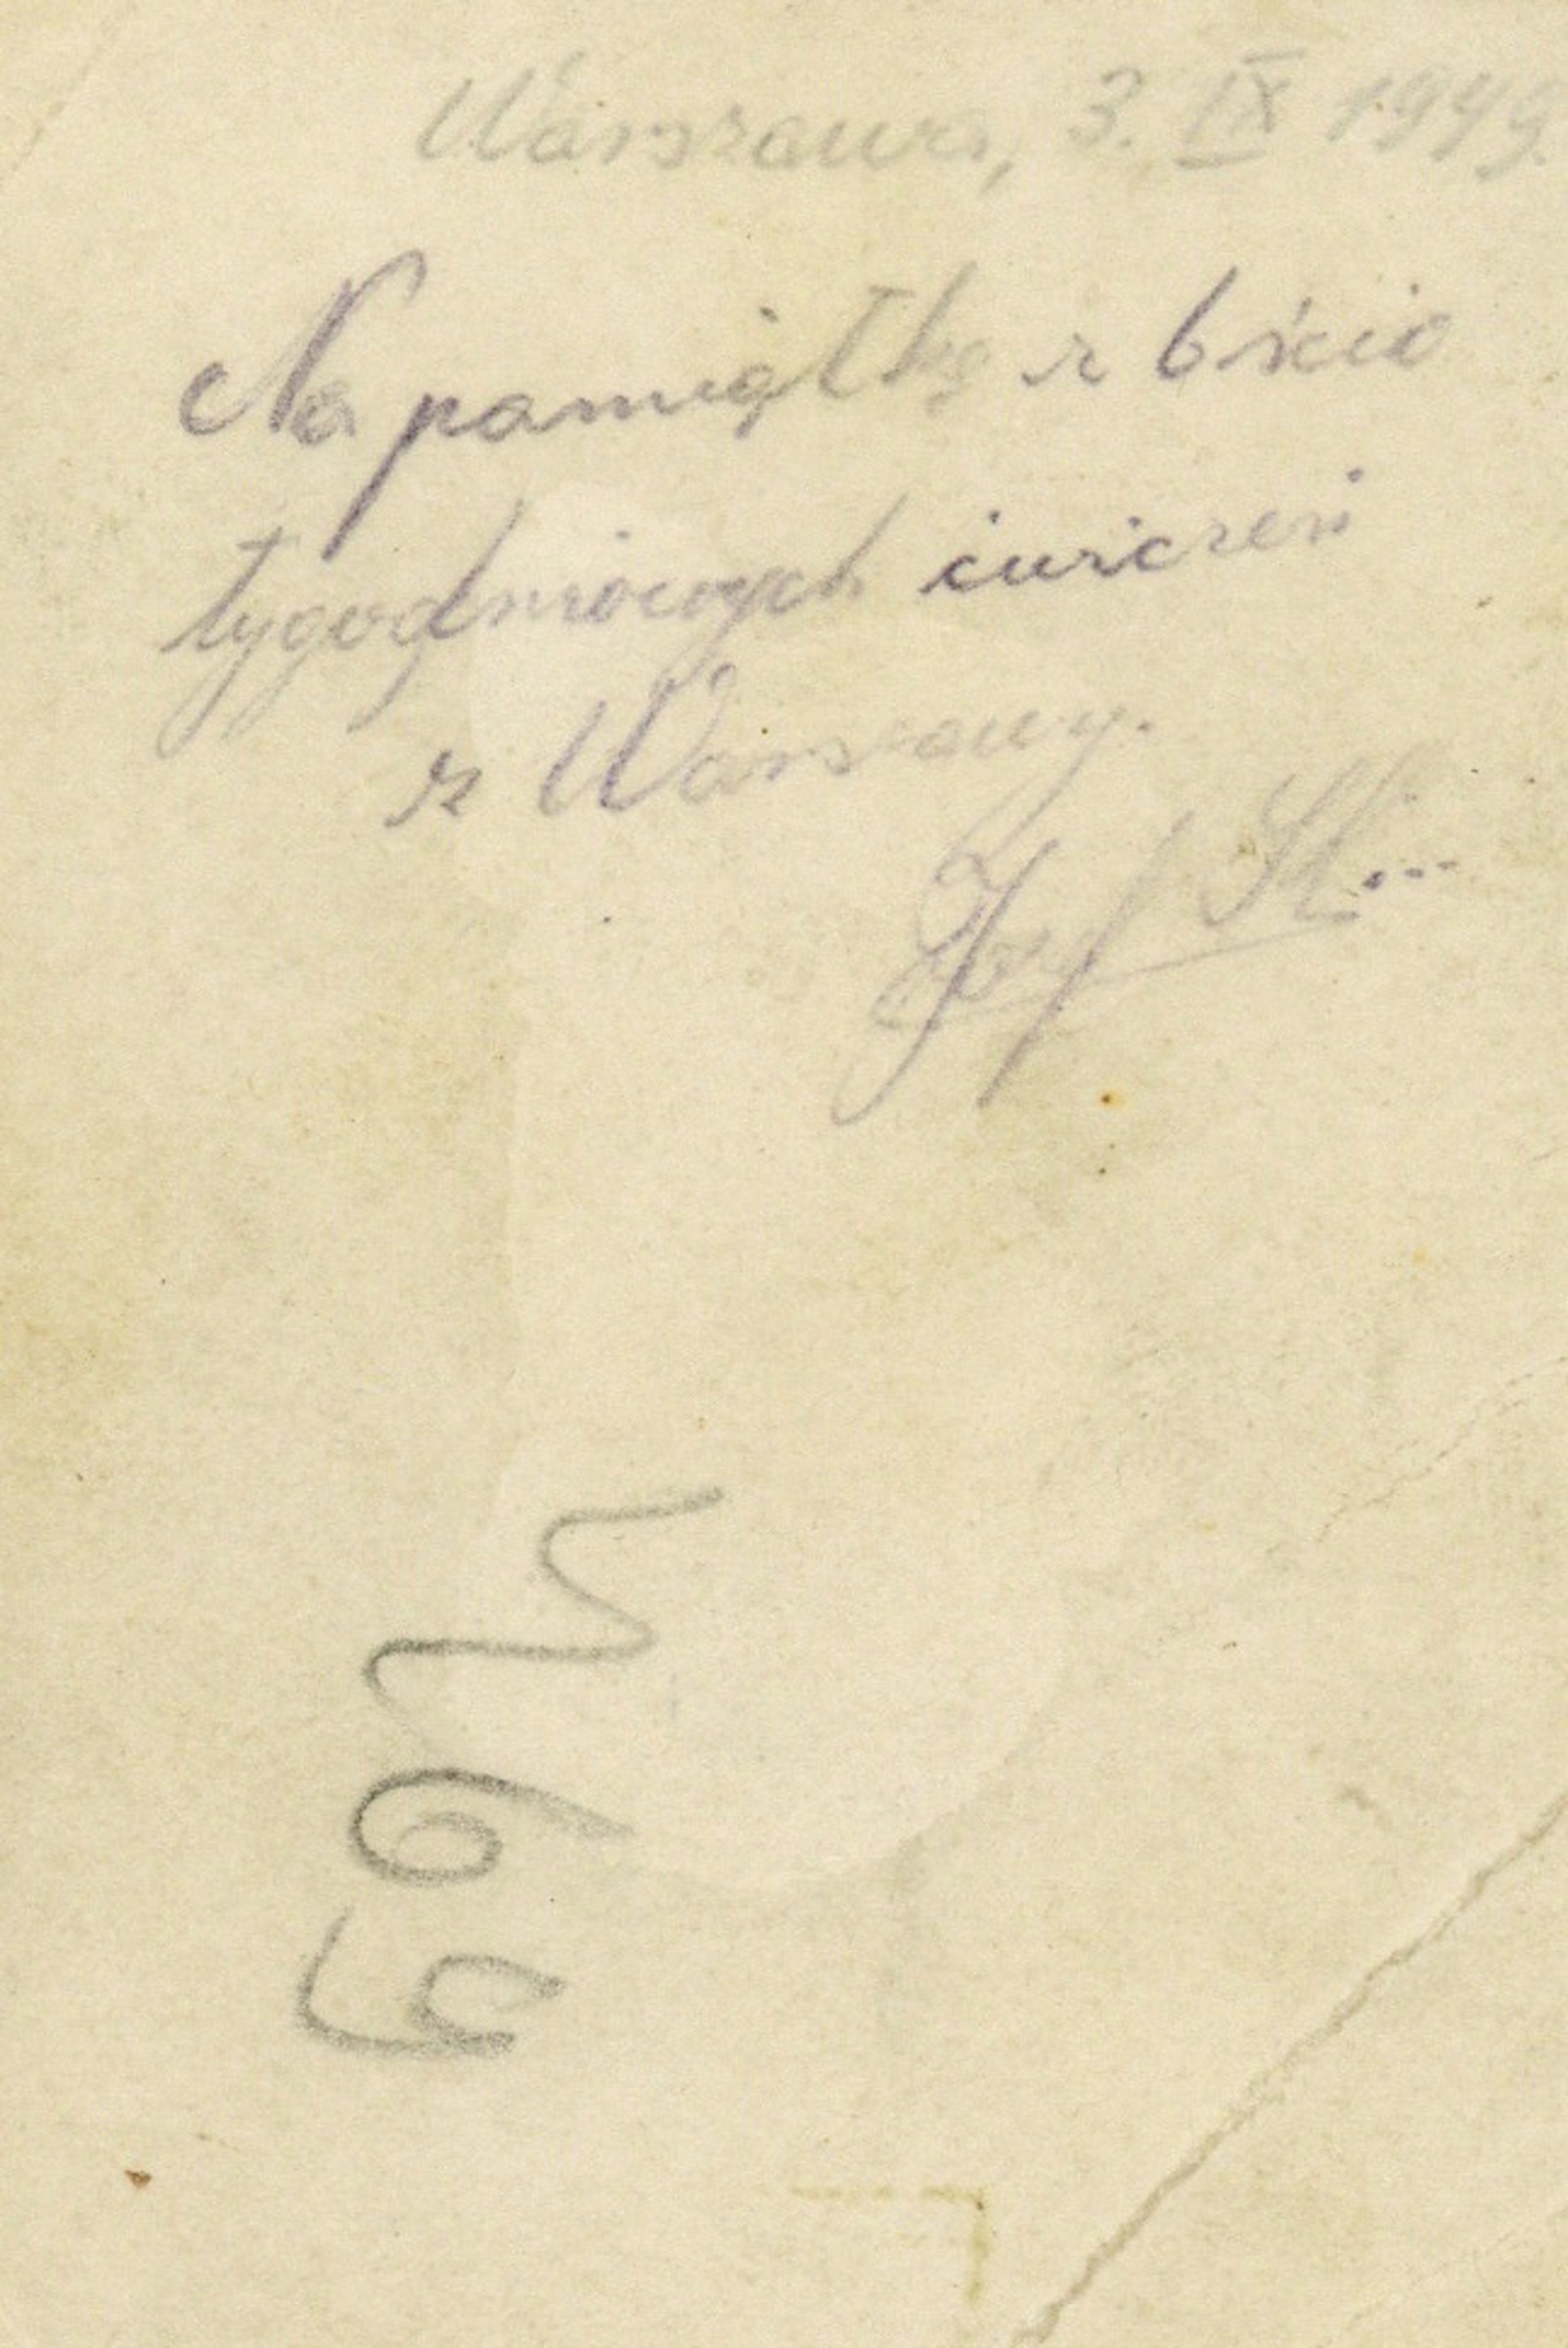 Warszawa, 3. IX 1949.
Na pamiątkę z 6ścio
tygodniowych ćwiczeń
z Warszawy.
Józef